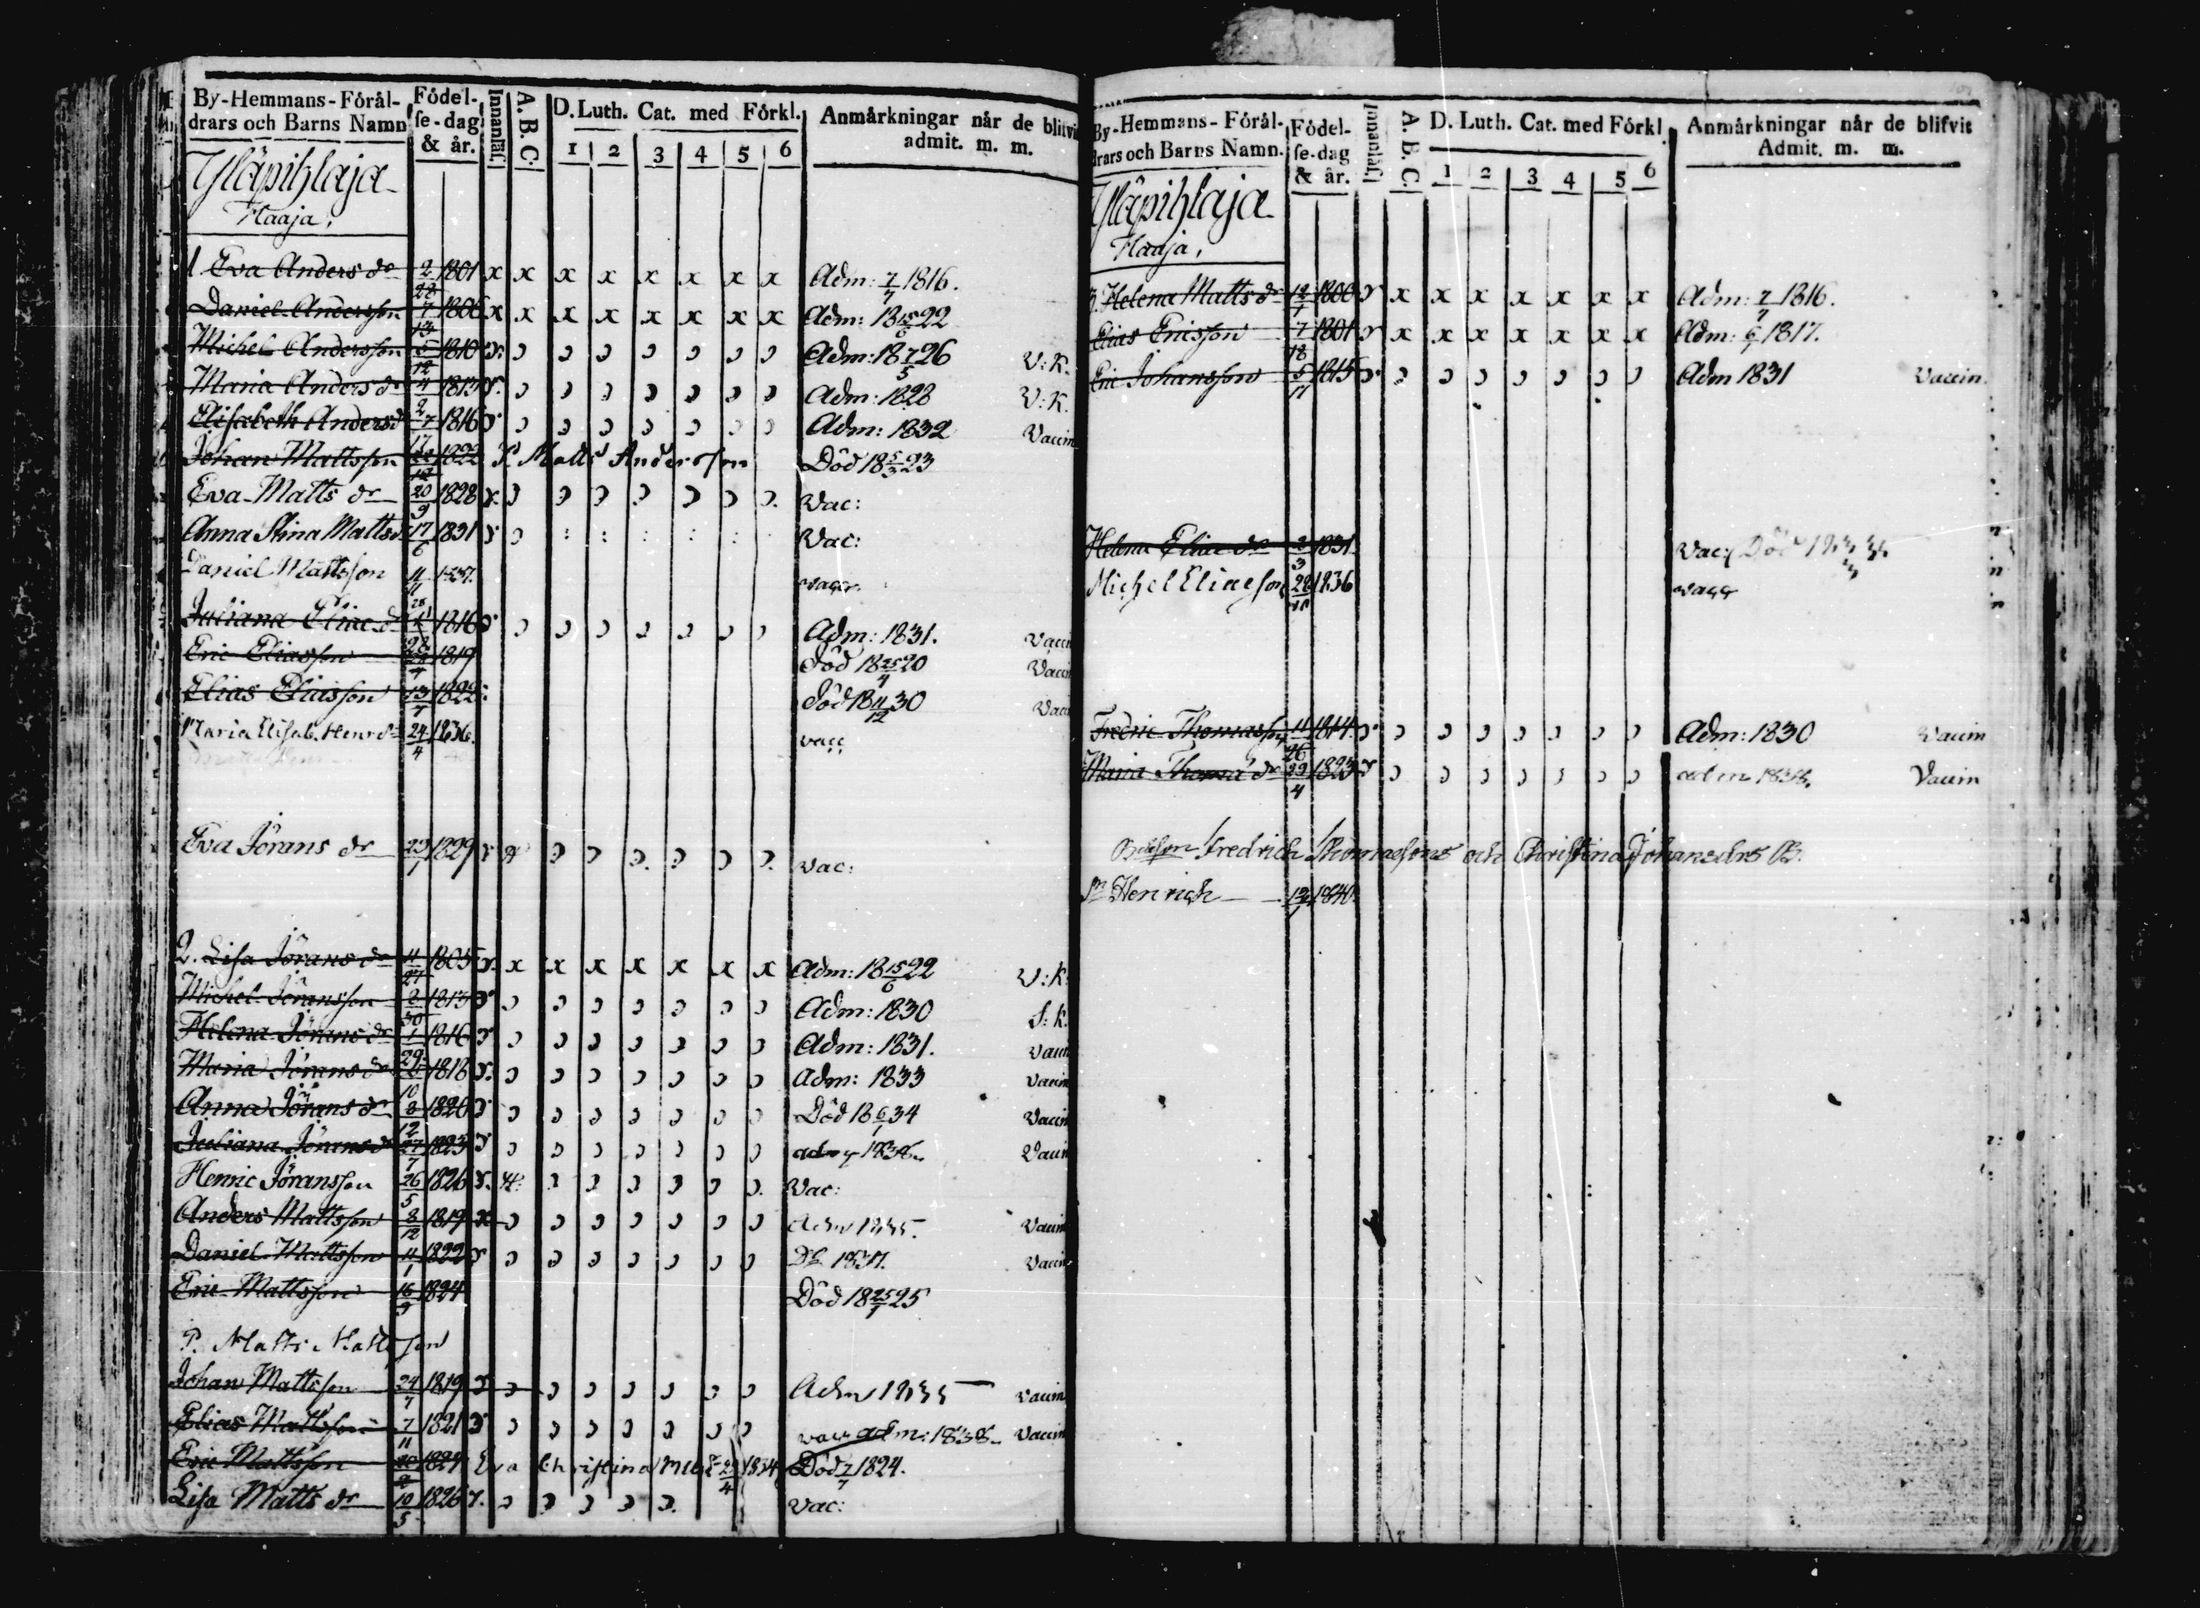 By-Hemmans-Förål-
drars och Barns Namn
Födel-
se-dag
& år.
Innanläs.
A. B. C.
D. Luth. Cat. med Förkl.
1 2 3 4 5 6
Anmärkningar når de blifvit
admit. m. m.
Yläpihlaja
Haaja,
1 Eva Anders dr 2 1801 x x x x x x x x Adm: 7/7 1816.
Daniel Andersson 7 1806 x x x x x x x x Adm: 18 15/6 22
Michel Andersson 5 1810 Adm: 18 7/5 26 V: K.
Maria Anders dr 4 1813 Adm: 1828 V: K.
Elisabeth Anders dr 7 1816 Adm: 1832 Vaccin
Johan Mattsson 1822 P. Matts Andersson Död 18 5/3 23
Eva Matts dr 20/9 1828 Vac:
Anna Stina Matts dr 17/6 1831 Vac:
Daniel Mattsson 11/11 1837. vacc.
Juliana Elias dr 1816 Adm: 1831. Vaccin
Eric Eliasson 1819 Död 18 25/4 20 Vaccin
Elias Eliasson 13/7 1822 Död 18 11/12 30 Vaccin
Maria Elisab. Henr dr 24/4 1836. vacc
Eva Jörans dr 23/1 1829 Vac:
2. Lisa Jörans dr 11 1805 x x x x x x x Adm: 18 15/6 22 V: K.
Michel Jöransson 8 1813 Adm: 1830 S: K.
Helena Jörans dr 1 1816 Adm: 1831. Vaccin
Maria Jörans dr 1818 Adm: 1833 Vaccin
Anna Jörans dr 8 1820 Död 18 6/1 34 Vaccin
Juliana Jörans dr 27/7 1823 adm 1838. Vaccin
Henric Jöransson 26/5 1826 Vac:
Anders Mattsson 8/12 1819 Adm 1835. Vaccin
Daniel Mattsson 11/1 1822 1837. Vaccin
Eric Mattsson 16/9 1824 Död 18 25/1 25
P. Matts Mattsson
Johan Mattsson 24/7 1819 Adm 1835 Vaccin
Elias Mattsson 7/11 1821 vacc adm: 1838. Vaccin
Eric Mattsson 20/2 1824 Eva Christina 1834 Död 7/7 1824.
Lisa Matts dr 10/5 1826 Vac:
By-Hemmans-Förål-
drars och Barns Namn.
Födel-
se-dag
& år.
Innanläs.
A. B. C.
D. Luth. Cat. med Förkl
1 2 3 4 5 6
Anmärkningar når de blifvit
Admit. m. m.
Yläpihlaja
Haaja,
3. Helena Matts dr 12/1 1800 x x x x x x x Adm: 7/7 1816.
Elias Ericsson 7 1801 x x x x x x x Adm: 6/7 1817.
Eric Johansson 5/11 1815 Adm 1831 Vaccin.
Helena Elias dr 2/3 1831 Vac: Död
Michel Eliasson 28 1836 vacc
Fredric Thomasson 11 1814 Adm: 1830 Vaccin
Maria Thomas dr 29/4 1823 adm 1838. Vaccin
Fredrich Thomassons och Christina Johansdrs B.
Sn Henrich 12/1 1840.